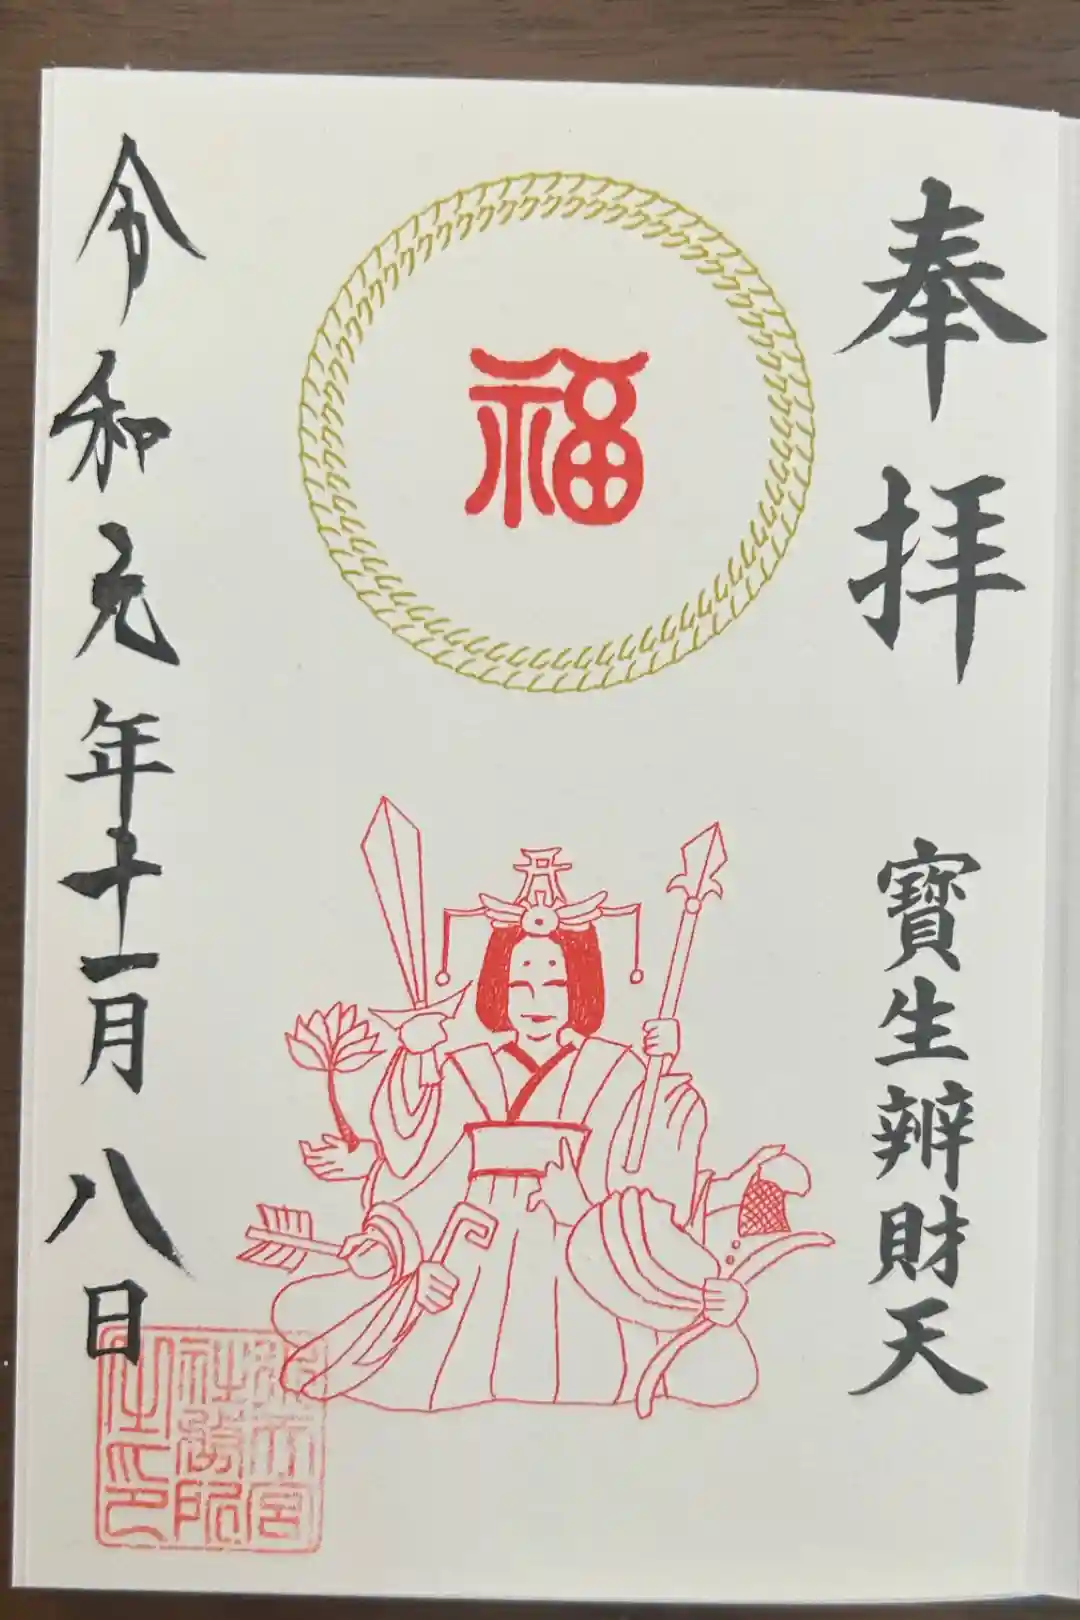 奉拝
寶生辨財天
福
令和元年十一月八日